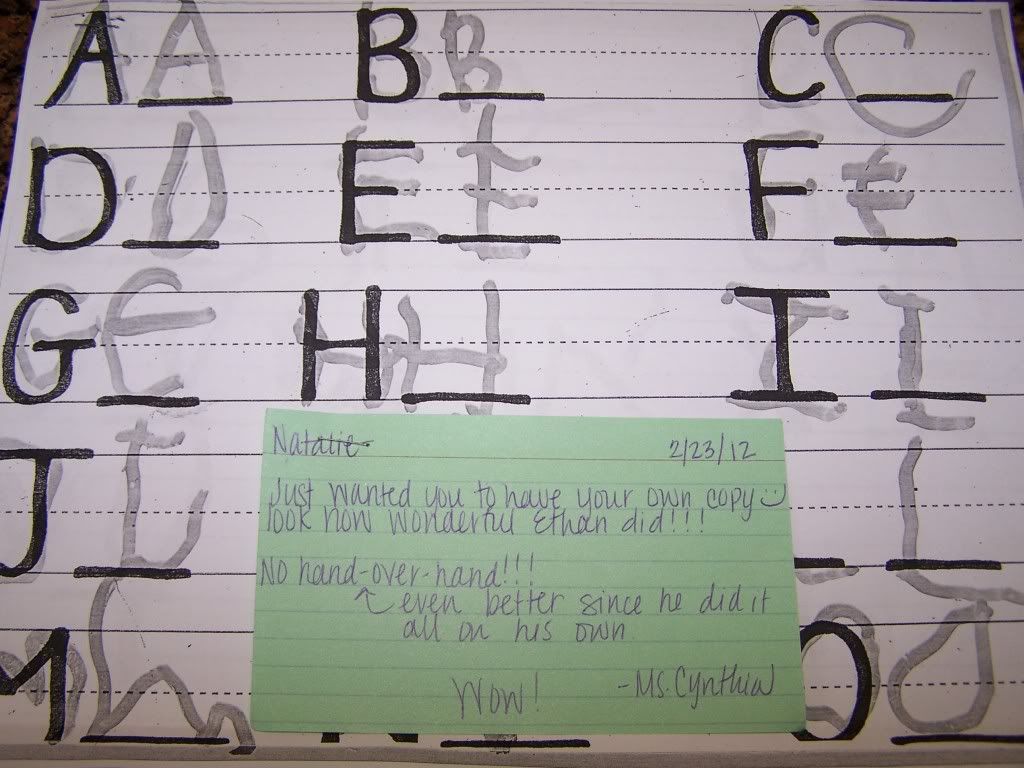 A A B B C C
D D E E F F
G G H H I I
J J L
M M N O O
Natalie 2/23/12
Just wanted you to have your own copy
look how wonderful Ethan did!!!
No hand-over-hand!!!
even better since he did it
all on his own
Wow! -Ms. Cynthia